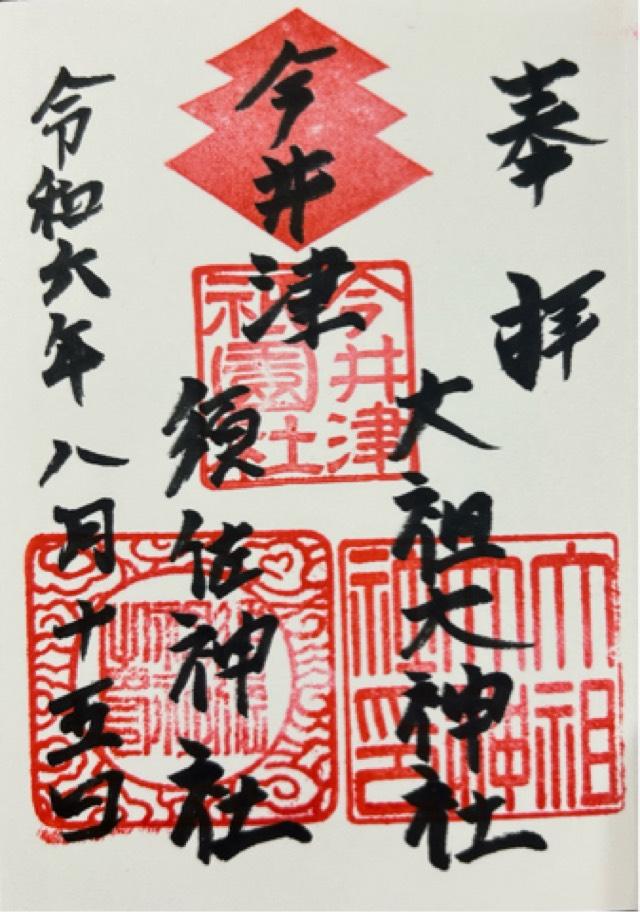 奉拝
大祖大神社
今井津
須佐神社
令和六年八月十五日
今井津
祇園社
大祖
大神
社印